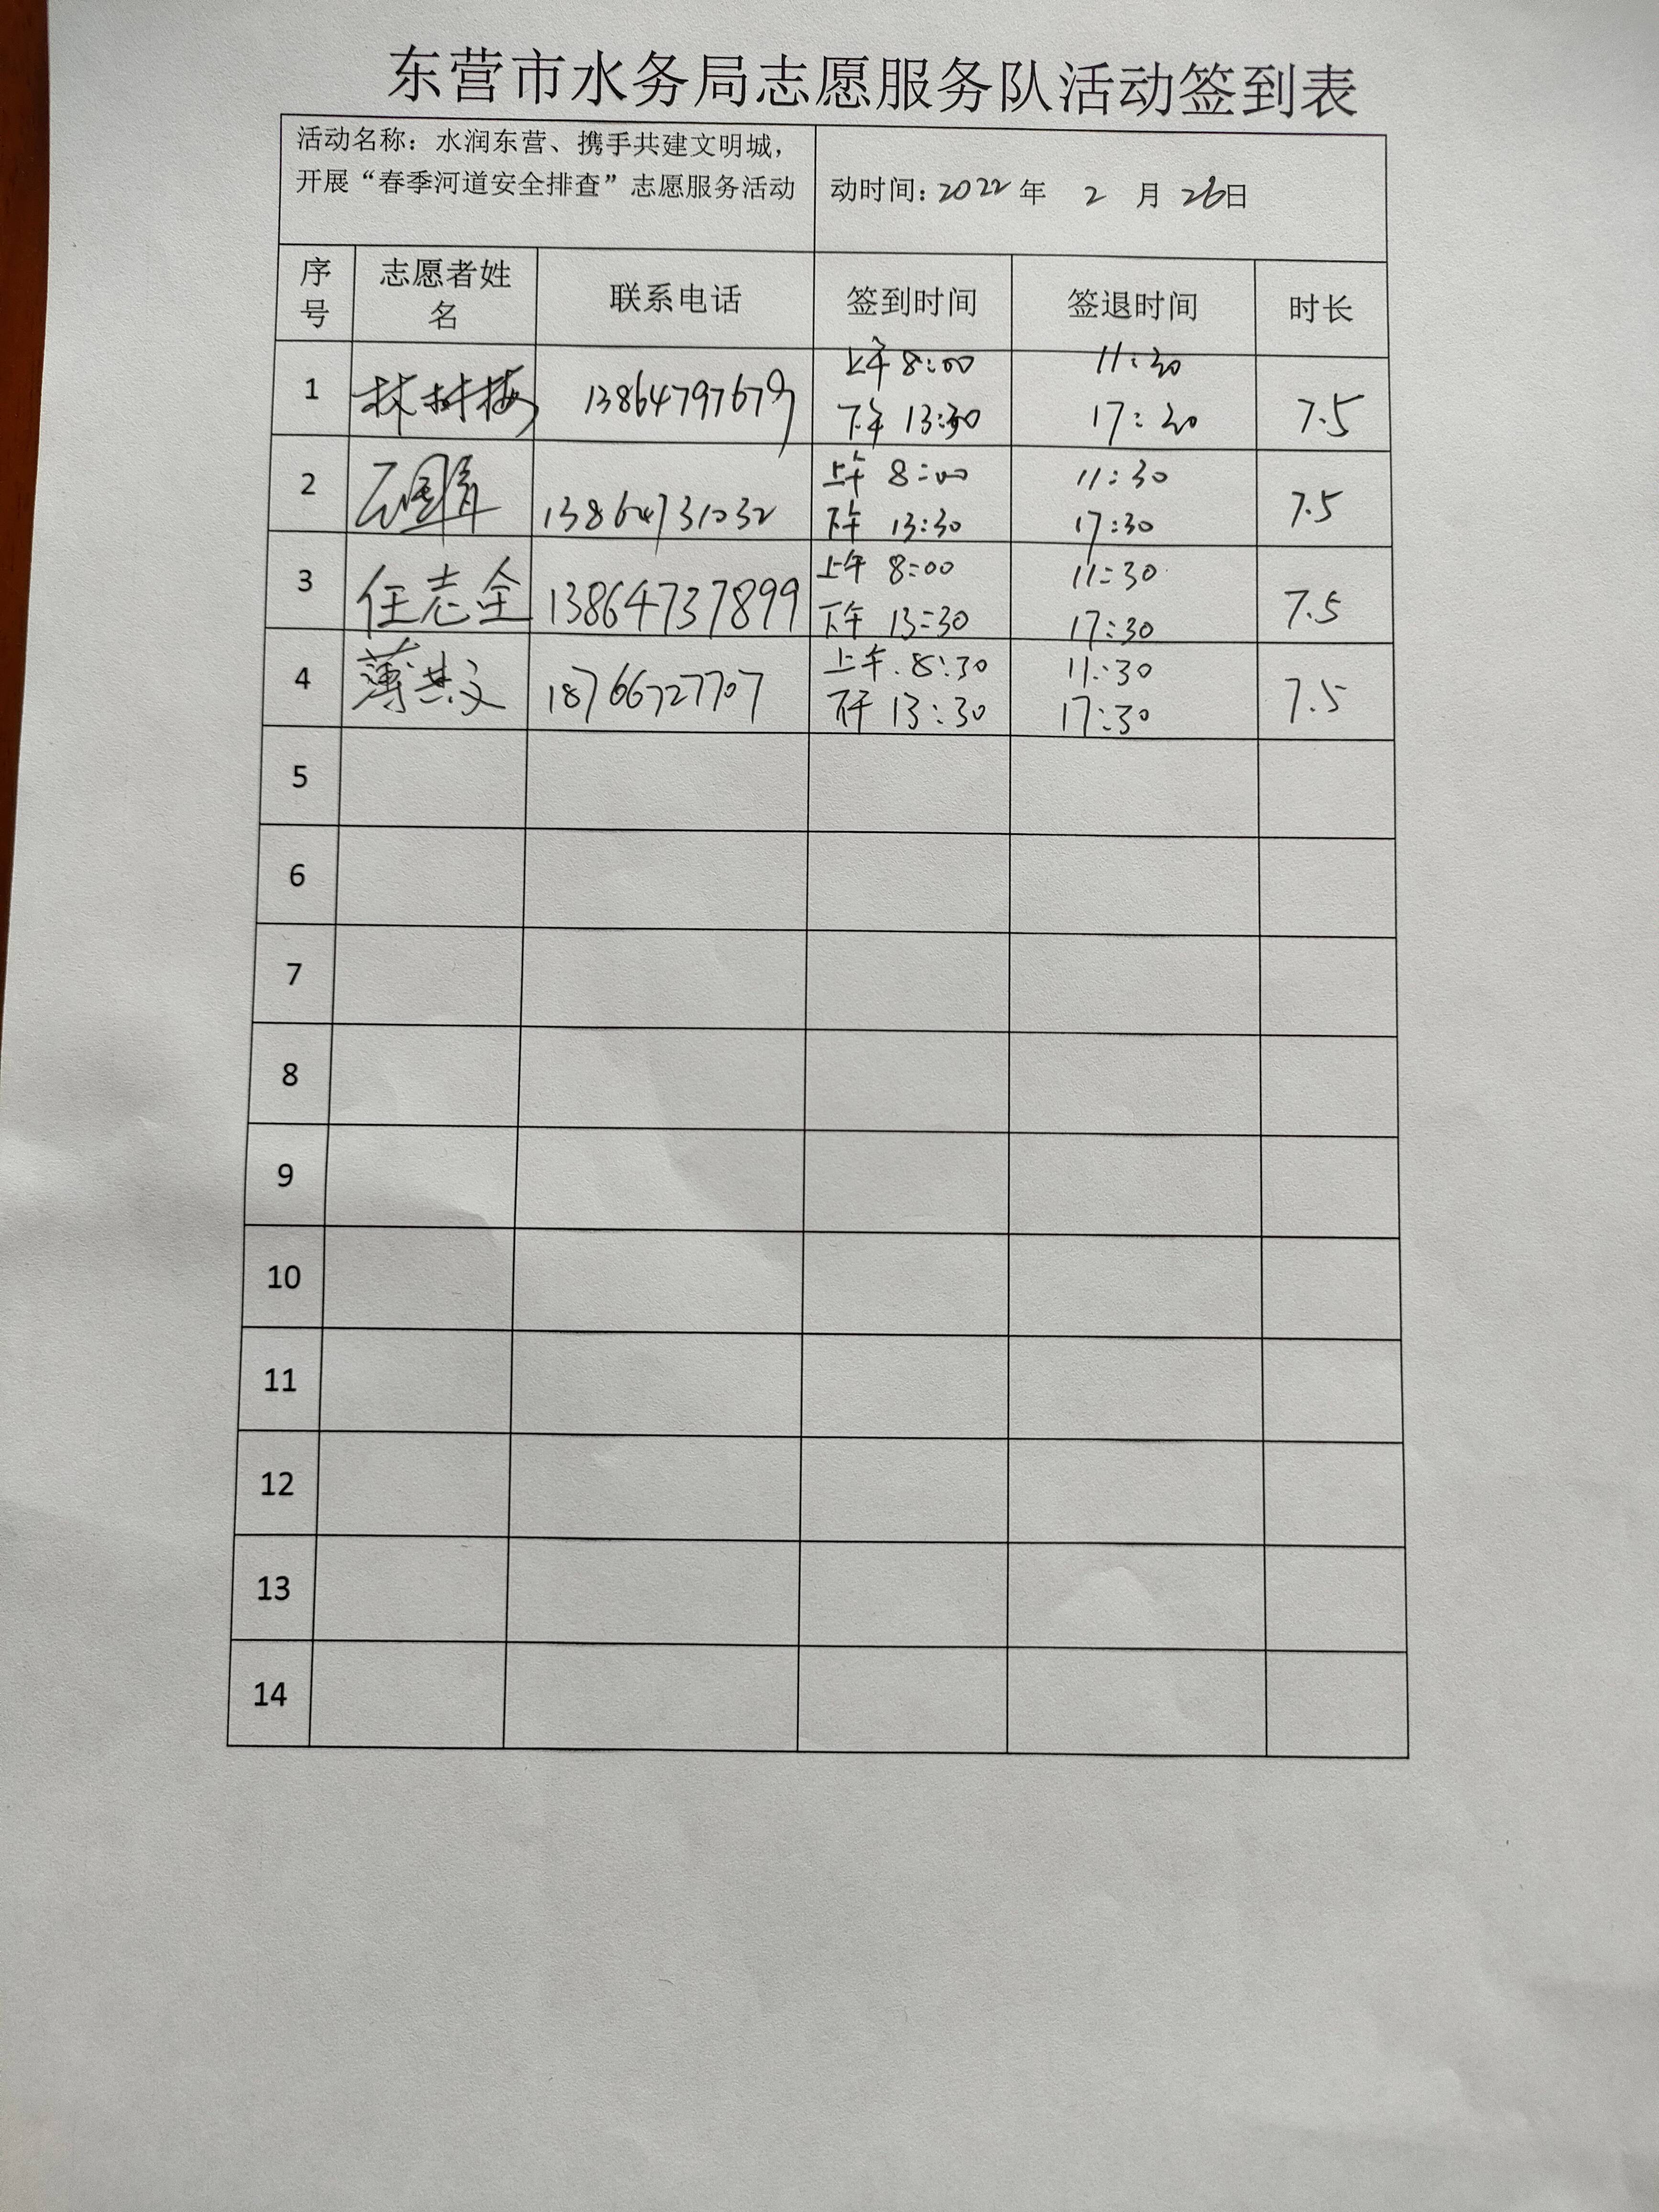 东营市水务局志愿服务队活动签到表
活动名称：水润东营、携手共建文明城，
开展“春季河道安全排查”志愿服务活动
动时间：2022 年 2 月 26日
序号 志愿者姓名 联系电话 签到时间 签退时间 时长
1 林树梅 13864797679 上午 8:00 11:30 7.5
下午 13:30 17:30
2 13864731032 上午 8:00 11:30 7.5
下午 13:30 17:30
3 任志全 13864737899 上午 8:00 11:30 7.5
下午 13:30 17:30
4 薄其文 18766727707 上午 8:30 11:30 7.5
下午 13:30 17:30
5
6
7
8
9
10
11
12
13
14